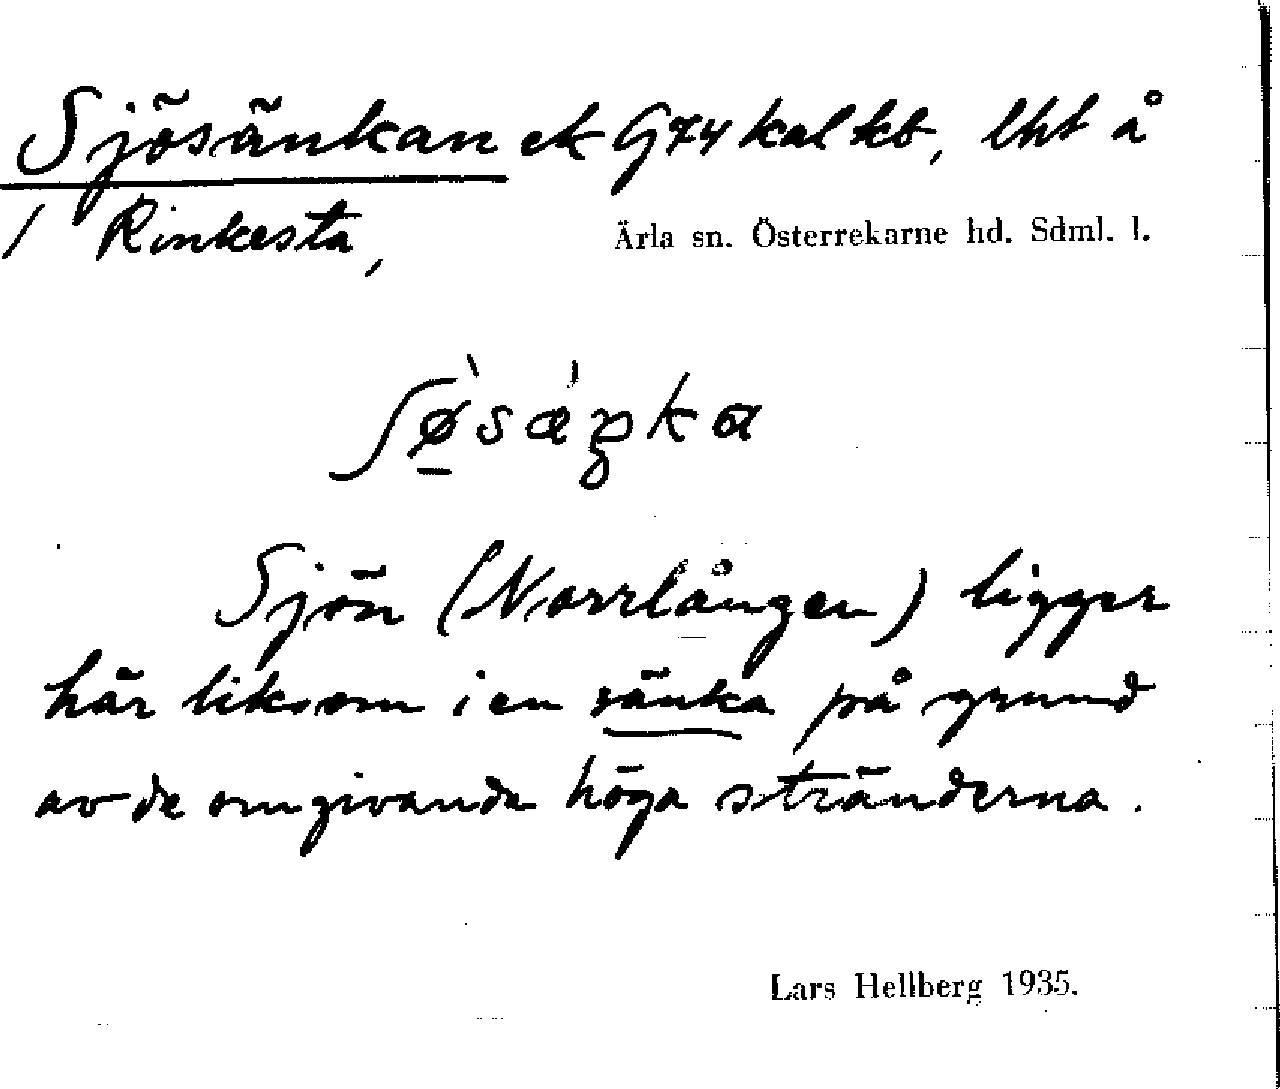 Sjösänkan ek G74 kal kb, lht å
/ Rinkesta,
Ärla sn. Österrekarne hd. Sdml. l.
Sjön (Norrlången) ligger
här liksom i en sänka på grund
av de omgivande höga stränderna.
Lars Hellberg 1935.